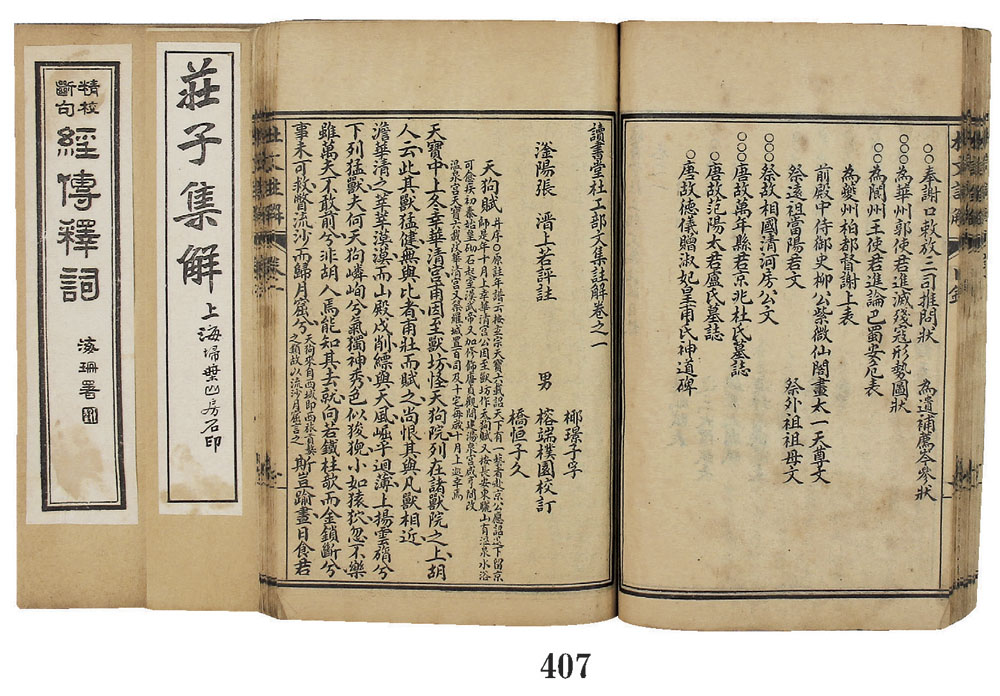 精校
斷句
經傳釋詞
莊子集解
上海埽葉山房石印
○○奉謝口敕放三司推問狀 為遺補薦岑參狀
○○○為華州郭使君進滅殘寇形勢圖狀
○○為閬州王使君進論巴蜀安危表
為夔州柏都督謝上表
前殿中侍御史柳公紫微仙閣畫太一天尊文
祭遠祖當陽君文 祭外祖祖母文
○○○祭故相國清河房公文
○○唐故萬年縣君京兆杜氏墓誌
○唐故范陽太君盧氏墓誌
○唐故德儀贈淑妃皇甫氏神道碑
讀書堂杜工部文集註解卷之一
滏陽張 溍上若評註
男
榕端樸園校訂
橋恒子久
天狗賦
天寶中上冬幸華清宮甫因至獸坊怪天狗院列在諸獸院之上胡
人云此其獸猛健無與比者甫壯而賦之尚恨其與凡獸相近
澹華清之莘莘漠漠而山殿戍削縹與天風崛乎迴薄上揚雲旓兮
下列猛獸夫何天狗嶙峋兮氣獨神秀色似狻猊小如猿狖忽不樂
雖萬夫不敢前兮非胡人焉能知其去就向若鐵柱欹而金鎖斷兮
事未可救瞥流沙而歸月窟兮
斯豈踰晝日食君
407